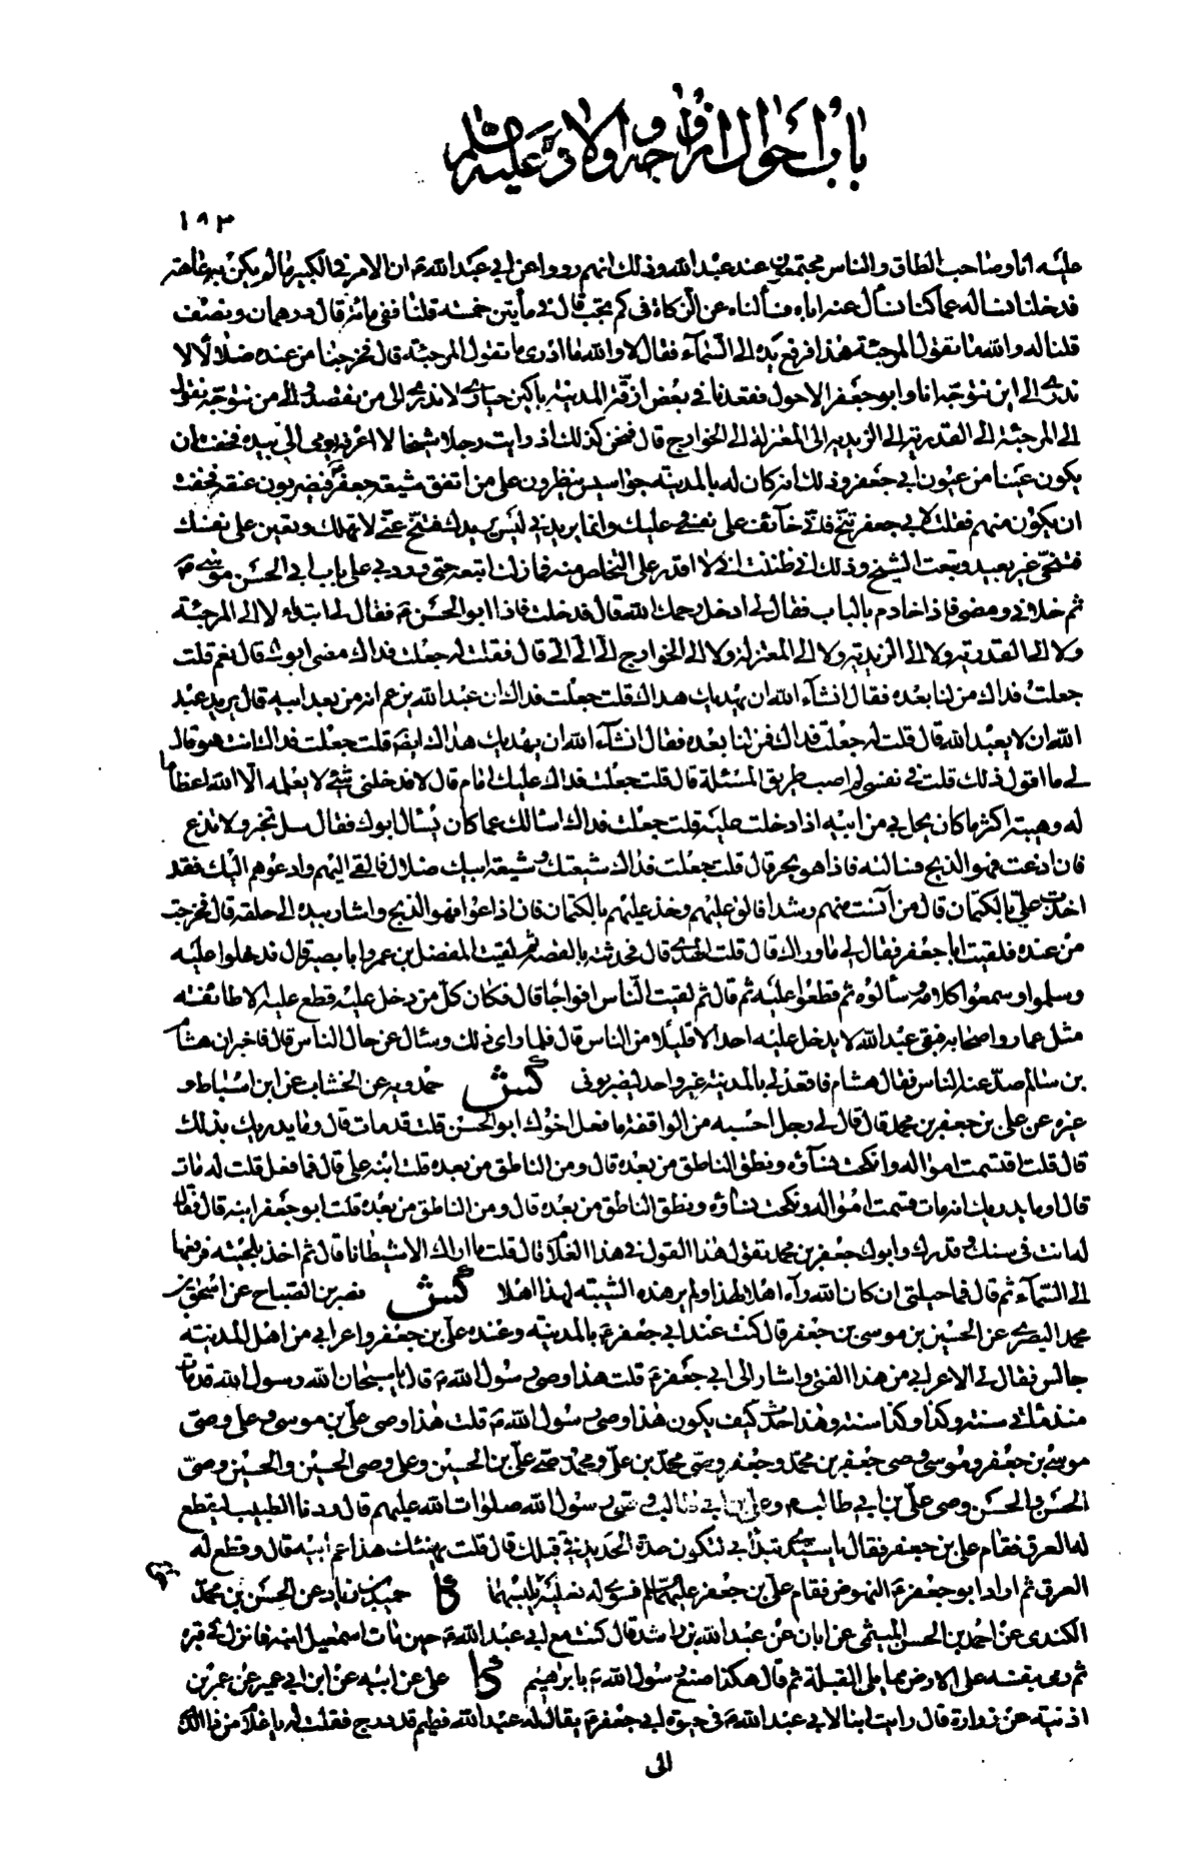 باب احوال ازواجه واولاده عليه السلم
١٨٣
عليه انا وصاحب الطاق والناس مجتمعون عند عبد الله وذلك انهم رووا عن ابي عبد الله ع ان الامر في الكبير ما لم يكن به عاهة
فدخلنا نساله عما كنا نسأل عنه اباه فسألناه عن الزكاة في كم يجب قال في مأتين خمسة قلنا ففي مائة قال درهمان ونصف
قلنا له والله ما تقول المرجئة هذا فرفع يده الى السماء فقال لا والله ما ادرى ما تقول المرجئة قال فخرجنا من عنده ضلالا لا
ندرى الى اين نتوجه انا وابو جعفر الاحول فقعدنا في بعض ازقة المدينة باكين حيارى لا ندرى الى من نقصد والى من نتوجه نقول
الى المرجئة الى القدرية الى الزيدية الى المعتزلة الى الخوارج قال فنحن كذلك اذ رايت رجلا شيخا لا اعرفه يومى الي بيده فخفت ان
يكون عينا من عيون ابي جعفر وذلك انه كان له بالمدينة جواسيس ينظرون على من اتفق شيعة جعفر فيضربون عنقه فخفت
ان يكون منهم فقلت لابي جعفر تنح فاني خائف على نفسي وعليك وانما يريدني ليس يريدك فتنح عني لا تهلك وتعين على نفسك
فتنحى غير بعيد وتبعت الشيخ وذلك اني ظننت اني لا اقدر على التخلص منه فما زلت اتبعه حتى ورد بي على باب ابي الحسن موسى ع
ثم خلاني ومضى فاذا خادم بالباب فقال لي ادخل رحمك الله قال فدخلت فاذا ابو الحسن ع فقال لي ابتداء لا الى المرجئة
ولا الى القدرية ولا الى الزيدية ولا الى المعتزلة ولا الى الخوارج الي الي الي قال فقلت له جعلت فداك مضى ابوك قال نعم قلت
جعلت فداك من لنا بعده فقال انشاء الله ان يهديك هداك قلت جعلت فداك ان عبد الله يزعم انه من بعد ابيه قال يريد عبد
الله ان لا يعبد الله قال قلت له جعلت فداك فمن لنا بعده فقال انشاء الله ان يهديك هداك ايضا قلت جعلت فداك انت هو قال
لي ما اقول ذلك قلت في نفسي لم اصب طريق المسئلة قال قلت جعلت فداك عليك امام قال لا فدخلني شئ لا يعلمه الا الله اعظاما
له وهيبة اكثر ما كان يحل بي من ابيه اذا دخلت عليه قلت جعلت فداك اسالك عما كان يسأل ابوك فقال سل تخبر ولا تذع
فان اذعت فهو الذبح فسالته فاذا هو بحر قال قلت جعلت فداك شيعتك وشيعة ابيك ضلال فالقي اليهم وادعوهم اليك فقد
اخذت علي بالكتمان قال من آنست منهم رشدا فالق عليهم وخذ عليهم بالكتمان فان اذاعوا فهو الذبح واشار بيده الى حلقه قال فخرجت
من عنده فلقيت ابا جعفر فقال لي ما وراك قال قلت الهدى قال فحدثته بالقصة ثم لقيت المفضل بن عمر وابا بصير قال فدخلوا عليه
وسلموا وسمعوا كلامه وسألوه ثم قطعوا عليه ثم قال ثم لقيت الناس افواجا قال فكان كل من دخل عليه قطع عليه الا طائفة
مثل عمار واصحابه فبقى عبد الله لا يدخل عليه احد الا قليلا من الناس قال فلما راى ذلك وسئال عن حال الناس قال فاخبر ان هشام
بن سالم صد عنه الناس فقال هشام فاقعد لي بالمدينة غير واحد ليضربوني كش حمدويه عن الخشاب عن ابن اسباط و
غيره عن علي بن جعفر بن محمد قال قال لي رجل احسبه من الواقفة ما فعل اخوك ابو الحسن قلت قد مات قال وما يدريك بذلك
قال قلت اقتسمت امواله وانكحت نساؤه ونطق الناطق من بعده قال ومن الناطق من بعده قلت ابنه علي قال فما فعل قلت له مات
قال وما يدريك انه مات قلت قسمت امواله ونكحت نساؤه ونطق الناطق من بعده قال ومن الناطق من بعده قلت ابو جعفر ابنه قال فقال
له انت في سنك وقدرك وابوك جعفر بن محمد تقول هذا القول في هذا الغلام قال قلت ما اراك الا شيطانا قال ثم اخذ بلحيته فرفعها
الى السماء ثم قال فما حيلتي ان كان الله رآه اهلا لهذا ولم ير هذه الشيبة لهذا اهلا كش نصر بن الصباح عن اسحق بن
محمد البصرى عن الحسين بن موسى بن جعفر قال كنت عند ابي جعفر ع بالمدينة وعنده علي بن جعفر واعرابي من اهل المدينة
جالس فقال لي الاعرابي من هذا الفتى واشار الى ابي جعفر ع قلت هذا وصي رسول الله ص قال يا سبحان الله رسول الله قد مات
منذ مائتي سنة وكذا وكذا سنة وهذا حدث كيف يكون هذا وصي رسول الله ص قلت هذا وصي علي بن موسى وعلي وصي
موسى بن جعفر وموسى وصي جعفر بن محمد وجعفر وصي محمد بن علي ومحمد وصي علي بن الحسين وعلي وصي الحسين والحسين وصي
الحسن والحسن وصي علي بن ابي طالب وعلي بن ابي طالب وصي رسول الله صلوات الله عليهم قال ودنا الطبيب ليقطع
له العرق فقام علي بن جعفر فقال يا سيدي تبدأ بي لتكون حدة الحديد في قبلك قال قلت يهنئك هذا عم ابيه قال وقطع له
العرق ثم اراد ابو جعفر ع النهوض فقام علي بن جعفر عليهما السلم فسوى له نعليه يلبسهما كا حميد بن زياد عن الحسن بن محمد
الكندى عن احمد بن الحسن الميثمي عن ابان عن عبد الله بن راشد قال كنت مع ابي عبد الله ع حين مات اسمعيل ابنه فانزل في قبره
ثم رمى بنفسه على الارض مما يلى القبلة ثم قال هكذا صنع رسول الله ص بابرهيم كا علي عن ابيه عن ابن ابي عمير عن عمر بن
اذينة عن زرارة قال رايت ابنا لابي عبد الله ع في حيوة ابي جعفر ع يقال له عبد الله فطيم قد درج فقلت له يا غلام من ذا الذى
الى